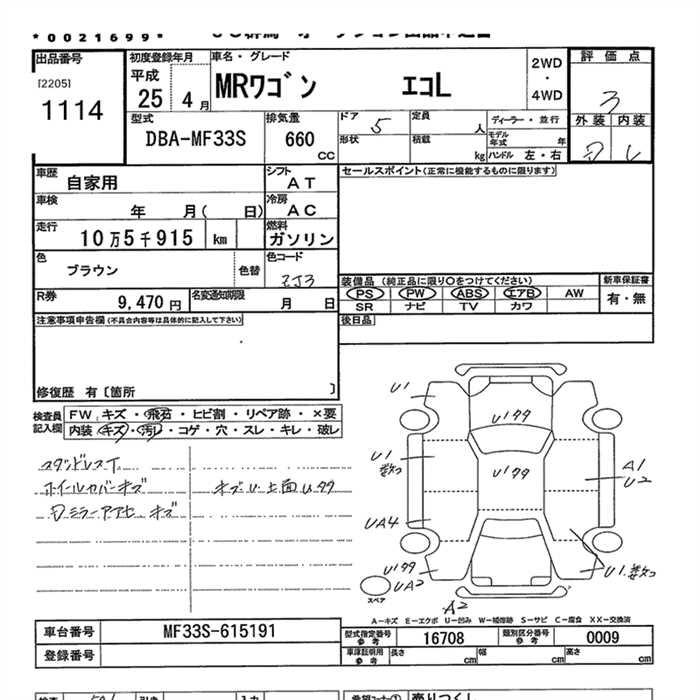 *0021699*
出品番号 初度登録年月 車名・グレード 2WD・4WD 評価点
[2205] 平成 MRワゴン エコL 3
1114 25 4月 外装 内装
型式 排気量 ドア 定員 ディーラー・並行
DBA-MF33S 660 CC 5 人 モデル年式 年
形状 積載 kg ハンドル 左・右
車歴 自家用 シフト AT セールスポイント(正常に機能するものに限ります)
車検 年 月( 日) 冷房 AC
走行 10万5千915 km 燃料 ガソリン
色 ブラウン 色替 色コード ZJ3
装備品 (純正品に限り○をつけてください) 新車保証書
R券 9,470円 名変通知期限 月 日 PS PW ABS エアB AW 有・無
SR ナビ TV カワ
注意事項申告欄(不具合内容等は具体的に記入して下さい) 後日品
修復歴 有〔箇所 〕
検査員記入欄 FW キズ・飛石・ヒビ割・リペア跡・×要
内装 キズ・汚レ・コゲ・穴・スレ・キレ・破レ
スタッドレスT
ホイルカバーキズ キズU上面U99
U1
U199
U199
U1 数コ
A1
U2
UA4
U199
UA2
U1.数コ
A2
スペア
A-キズ E-エクボ U-凹み W-補修跡 S-サビ C-腐食 XX-交換済
車台番号 MF33S-615191 型式指定番号 参考 16708 類別区分番号 参考 0009
登録番号 車庫証明用 参考 長さ cm 幅 cm 高さ cm